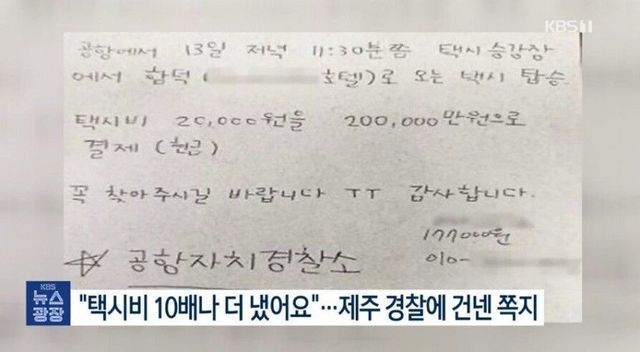 KBS 1
공항에서 13일 저녁 11:30분쯤 택시 승강장
에서 함덕 ( 호텔)로 오는 택시 탑승.
택시비 20,000원을 200,000만원으로
결제 (현금)
꼭 찾아주시길 바랍니다 ㅠㅠ 감사합니다.
177000원
☆ 공항자치경찰소
010-
KBS
뉴스
광장
"택시비 10배나 더 냈어요"…제주 경찰에 건넨 쪽지